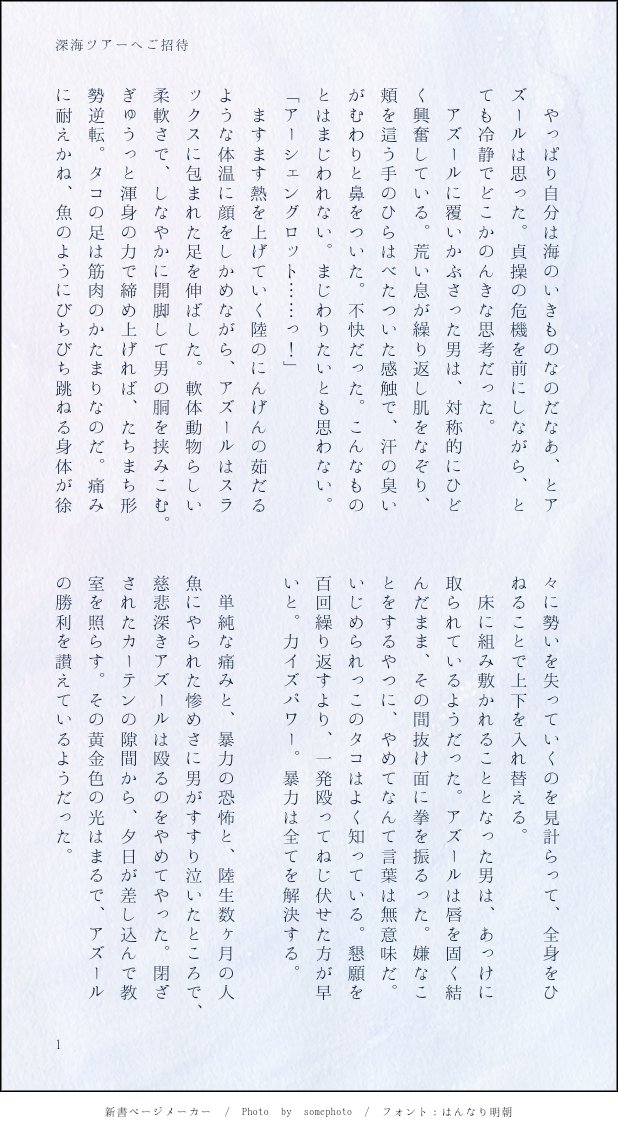 深海ツアーへご招待
　やっぱり自分は海のいきものなのだなあ、とア
ズールは思った。貞操の危機を前にしながら、と
ても冷静でどこかのんきな思考だった。
　アズールに覆いかぶさった男は、対称的にひど
く興奮している。荒い息が繰り返し肌をなぞり、
頬を這う手のひらはべたついた感触で、汗の臭い
がむわりと鼻をついた。不快だった。こんなもの
とはまじわれない。まじわりたいとも思わない。
「アーシェングロット……っ！」
　ますます熱を上げていく陸のにんげんの茹だる
ような体温に顔をしかめながら、アズールはスラ
ックスに包まれた足を伸ばした。軟体動物らしい
柔軟さで、しなやかに開脚して男の胴を挟みこむ。
ぎゅうっと渾身の力で締め上げれば、たちまち形
勢逆転。タコの足は筋肉のかたまりなのだ。痛み
に耐えかね、魚のようにびちびち跳ねる身体が徐
々に勢いを失っていくのを見計らって、全身をひ
ねることで上下を入れ替える。
　床に組み敷かれることとなった男は、あっけに
取られているようだった。アズールは唇を固く結
んだまま、その間抜け面に拳を振るった。嫌なこ
とをするやつに、やめてなんて言葉は無意味だ。
いじめられっこのタコはよく知っている。懇願を
百回繰り返すより、一発殴ってねじ伏せた方が早
いと。力イズパワー。暴力は全てを解決する。
　単純な痛みと、暴力の恐怖と、陸生数ヶ月の人
魚にやられた惨めさに男がすすり泣いたところで、
慈悲深きアズールは殴るのをやめてやった。閉ざ
されたカーテンの隙間から、夕日が差し込んで教
室を照らす。その黄金色の光はまるで、アズール
の勝利を讃えているようだった。
1
新書ページメーカー　/　Photo　by　somephoto　/　フォント：はんなり明朝